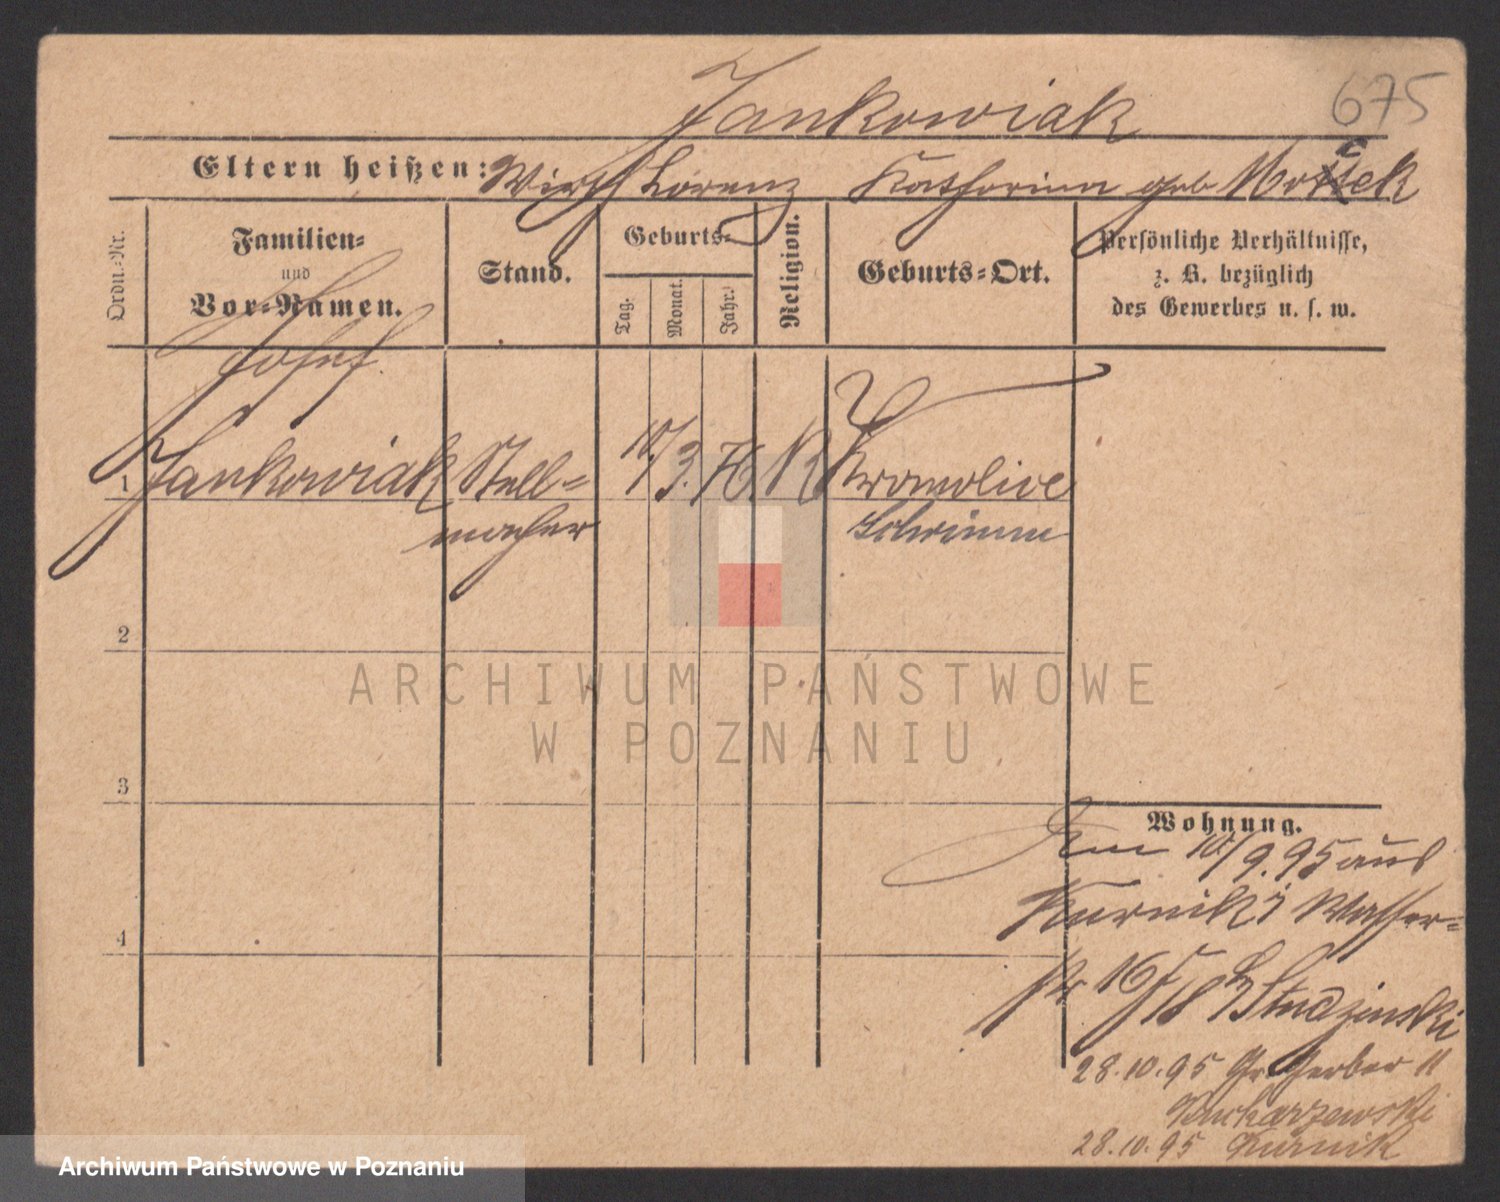 675
Jankowiak
Eltern heißen: Wirth Lorenz Katharina geb
Ordn.-Nr.
Familien-
und
Vor-Namen.
Stand.
Geburts-
Tag.
Monat.
Jahr.
Religion.
Geburts-Ort.
Persönliche Verhältnisse,
z. B. bezüglich
des Gewerbes u. s. w.
Josef
1 Jankowiak Stell- 10/3. 76 K Kromolice
macher Schrimm
2
ARCHIWUM PAŃSTWOWE
W POZNANIU
3
4
Wohnung.
10/9.95 aus
Kurnik Wasser-
str 16 Studzinski
28.10.95 Gr Gerber 11
28.10.95 Kurnik
Archiwum Państwowe w Poznaniu